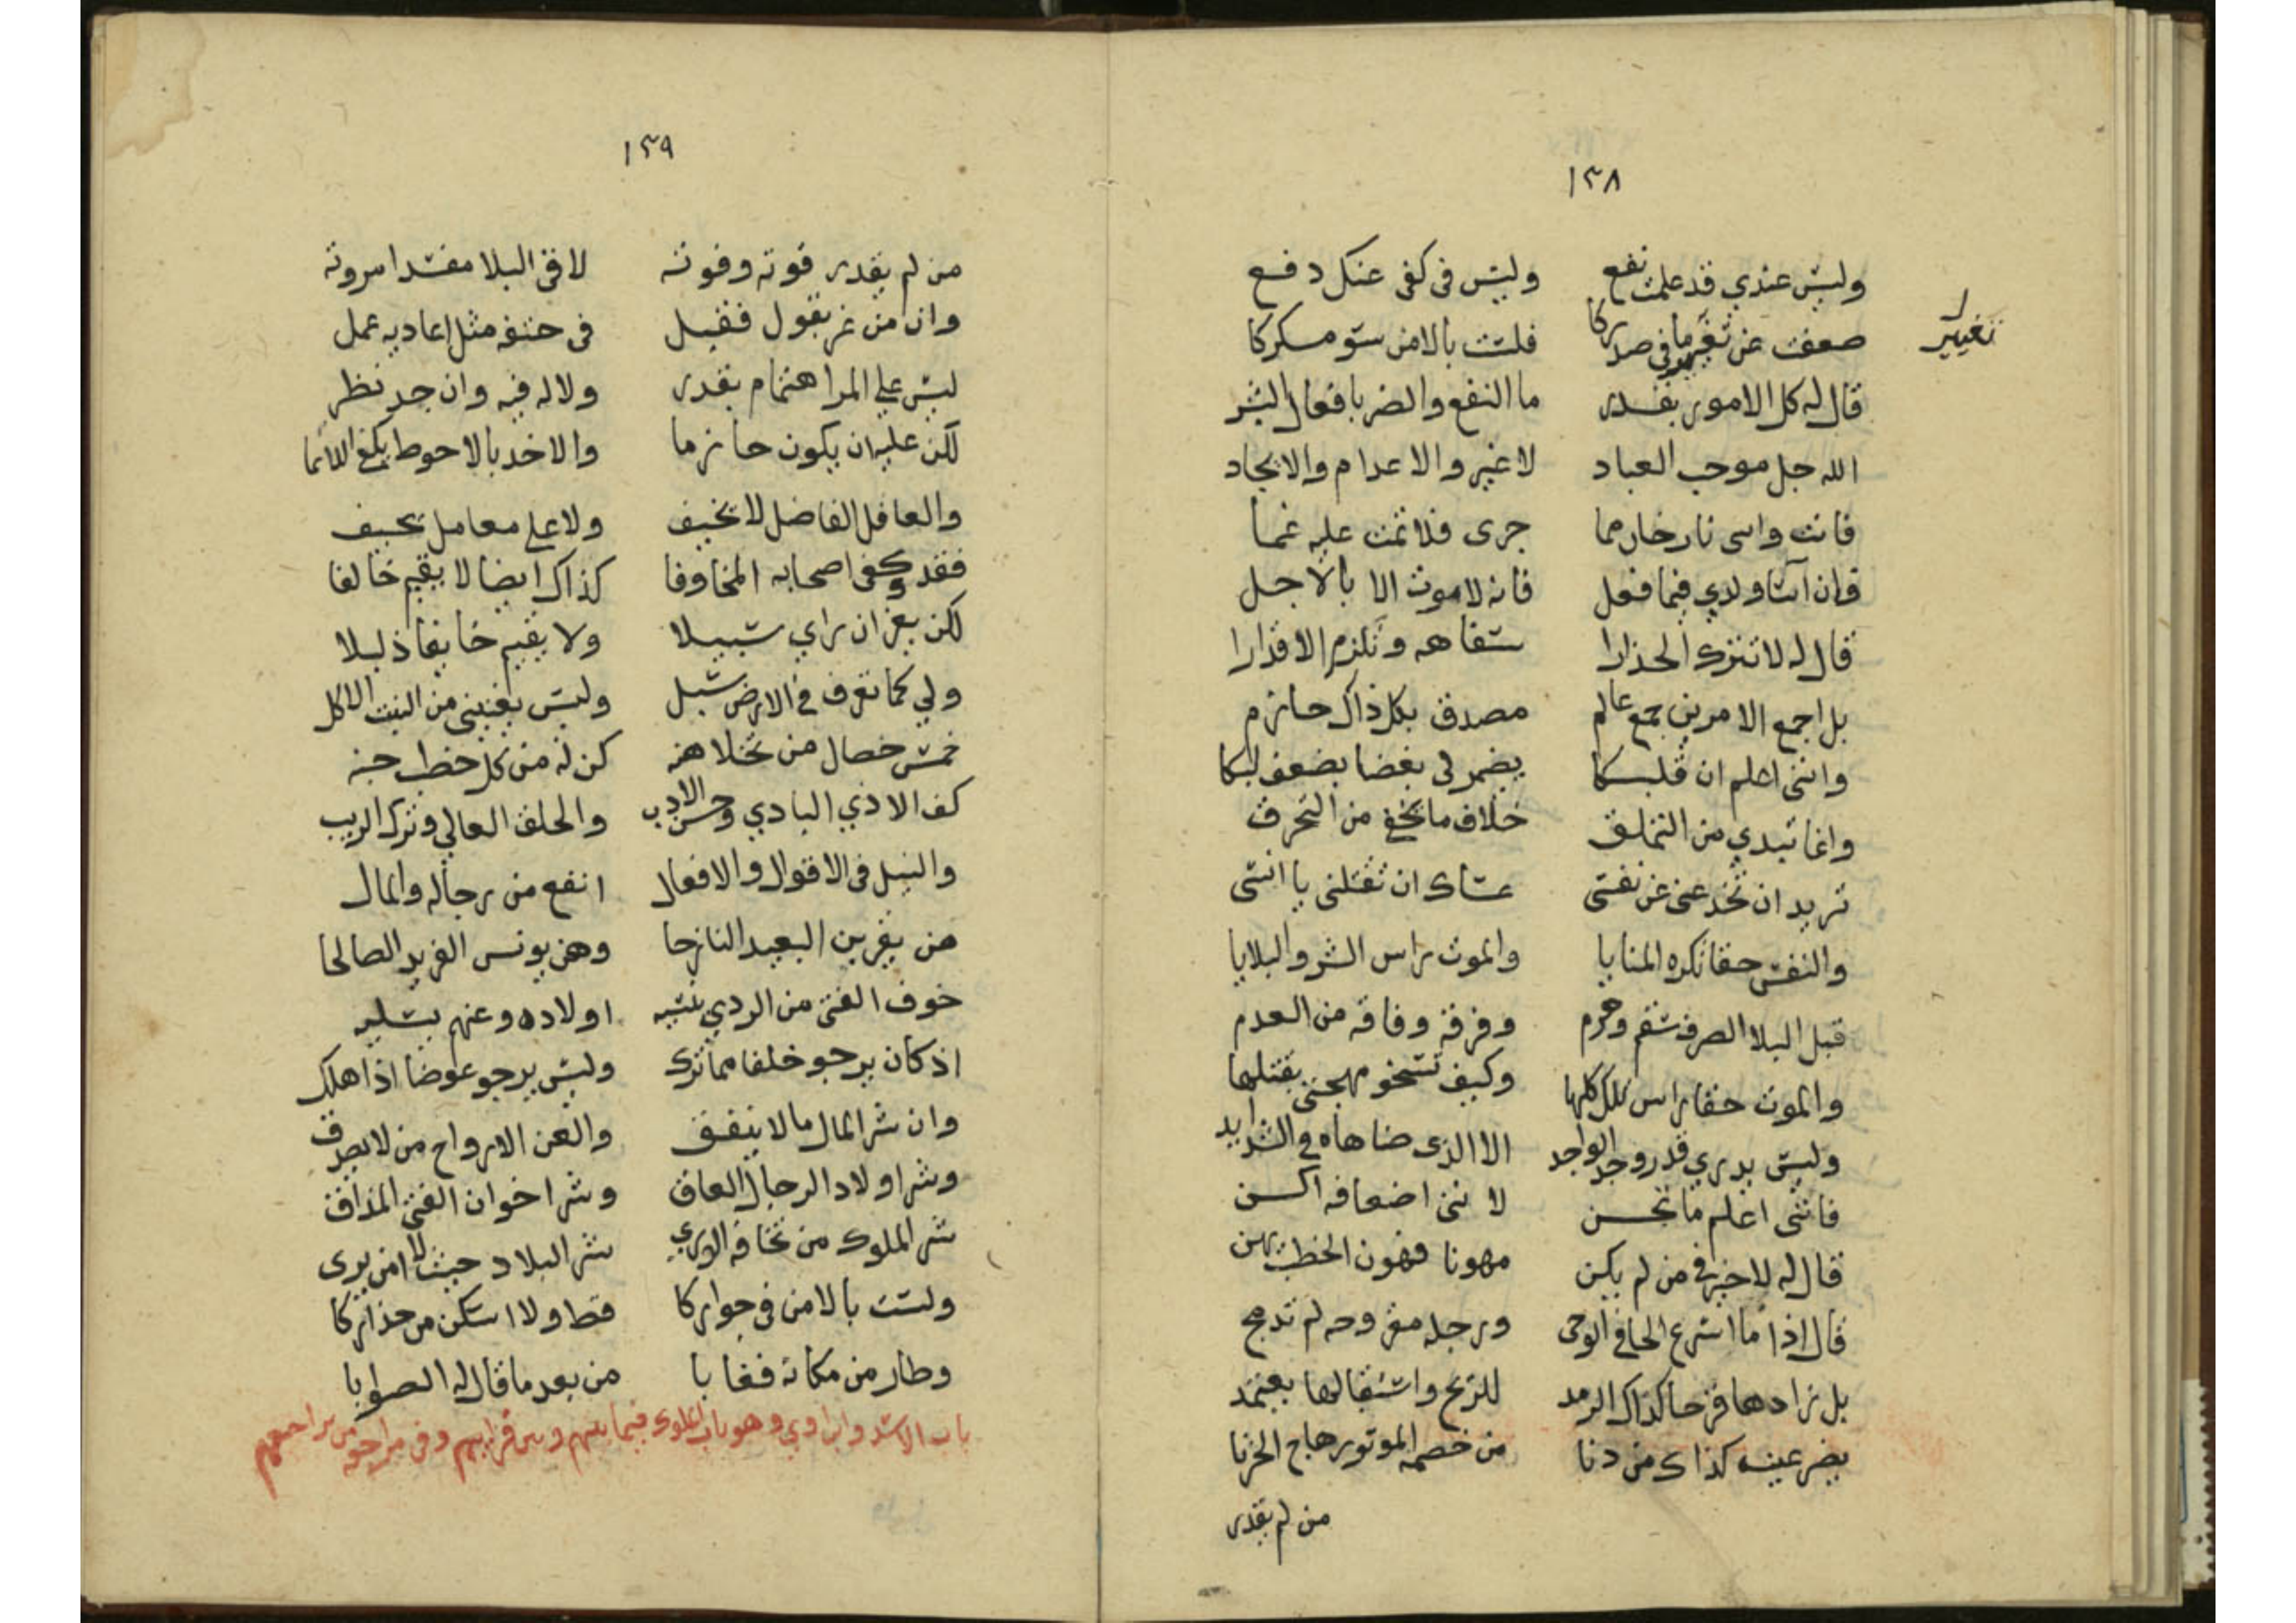 ١٣٨
وليس عندي قد علمت نفع وليس فى كفى عنك دفع
ضعفت عن تغيير ما فى صدركا فلست بالامن سو مسكركا
تغيير
قال له كل الامور بقدر ما النفع والضر بافعال البشر
الله جل موجب العباد لا غير والاعدام والايجاد
فانت واسى نار خارمما جرى فلا تمت عليه غما
فان آسا ولدي فيما فعل فانه لا موت الا بالاجل
قال له لا تترك الحذارا سفاهه وتلزم الاقدارا
بل اجمع الامرين جمع عالم مصدق بكل ذاك حازم
واننى اعلم ان قلبكا يضمر لى بغضا يضعف لبكا
وانما تبدي من التملق خلاف ما تخفى من التحرق
تريد ان تخدعنى عن نفسى عساك ان تقتلنى يا انسى
والنفس حقا تكره المنايا والموت راس الشر والبلايا
قبل البلا الصرف سقم وهرم وفرقة وفاقه من العدم
والموت حقا راس تلك كلها وكيف تسخو مهجتى بقتلها
وليس يدري قدر وجد الواجد الا الذى ضاهاه فى الشدايد
فاننى اعلم ما تحسن لاننى اضعافه اكسن
قال له لا خير فى من لم يكن مهونا فهون الخطب يهن
قال اذا ما اسرع الحافى الوحى ورجله مقروحه لم تدمج
بل زادها قرحا كذاك الرمد للريح واستقبالها يعتمد
يضر عينه كذاك من دنا من خصمه الموتور هاج الحزنا
من لم يقدر
١٣٩
من لم يقدر قوته وقوته لاقى البلا مفسدا مروته
وان من غر بقول فقبل فى حتفه مثل اعاديه عمل
ليس على المرا هتمام بقدر ولا له فيه وان جد نظر
لكن عليه ان يكون حازما والاخذ بالاحوط يكفى اللائما
والعاقل الفاضل لا يخيف ولا على معامل يحيف
فقد كفى اصحابه المخاوفا كذاك ايضا لا يقيم خائفا
لكن يفر ان راي سبيلا ولا يقيم خايفا ذليلا
ولي كما تعرف فى الارض سبل وليس يغنينى من النبت الاكل
خمس خصال من تخلاهنه كن له من كل خطب جنه
كف الاذي البادي وحسن الادب والخلق العالي وترك الريب
والنبل فى الاقوال والافعال انفع من رجاله والمال
هن يقربن البعيد النازحا وهن يونس الفريد الصالحا
خوف الفتى من الردي ينسيه اولاده وعنهم يسليه
اذ كان يرجو خلفا مما ترك وليس يرجو عوضا اذا هلك
وان شر المال ما لا ينفق والعن الارواح من لا يصرف
وشر اولاد الرجال العاق وشر اخوان الفتى المذاق
شر الملوك من تخافه الوري شر البلاد حيث لا امن يرى
ولست بالامن فى جواركا قط ولا اسكن من حذاركا
وطار من مكانه فغابا من بعد ما قال له الصوابا
باب الاسد وابن اوي وهو باب الملوك فيما بينهم وبين قرابينهم وفى مراجعه من يراجعهم